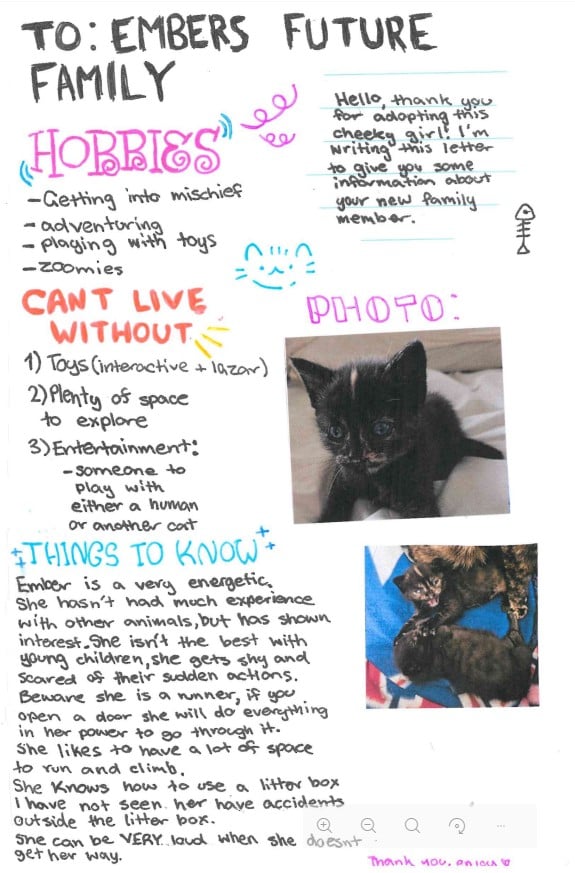 TO: EMBERS FUTURE
FAMILY
Hello, thank you
for adopting this
cheeky girl! I'm
writing this letter
to give you some
information about
your new family
member.
HOBBIES
-Getting into mischief
- adventuring
- playing with toys
-zoomies
CANT LIVE
WITHOUT
1) Toys (interactive + lazar)
2) Plenty of space
to explore
3) Entertainment:
-someone to
play with
either a human
or another cat
PHOTO:
THINGS TO KNOW
Ember is a very energetic.
She hasn't had much experience
with other animals, but has shown
interest. She isn't the best with
young children, she gets shy and
scared of their sudden actions.
Beware she is a runner, if you
open a door she will do everything
in her power to go through it.
She likes to have a lot of space
to run and climb.
She knows how to use a litter box
I have not seen her have accidents
outside the litter box.
She can be VERY loud when she doesnt
get her way.
Thank you.